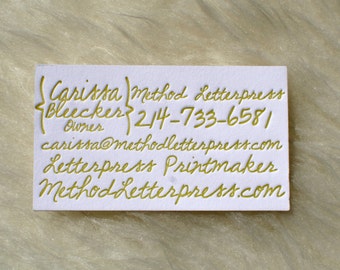 {Carissa Bleecker Owner} Method Letterpress
214-733-6581
carissa@methodletterpress.com
Letterpress Printmaker
MethodLetterpress.com